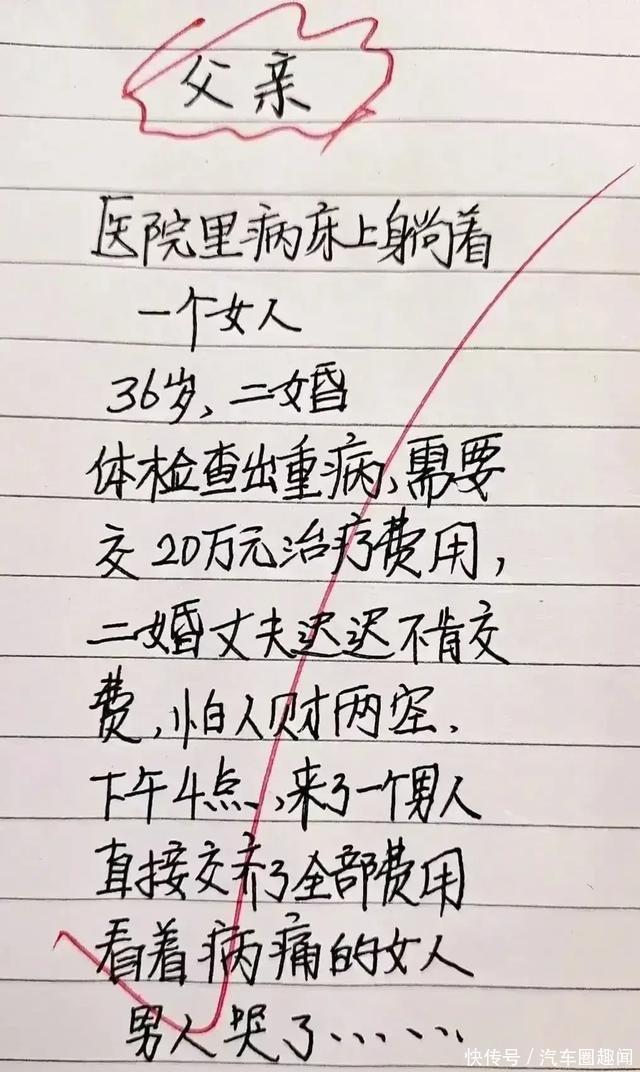 父亲
医院里病床上躺着
一个女人
36岁、二婚
体检查出重病、需要
交20万元治疗费用,
二婚丈夫迟迟不肯交
费,怕人财两空.
下午4点,来了一个男人
直接交齐了全部费用
看着病痛的女人
男人哭了......
快传号/汽车圈趣闻